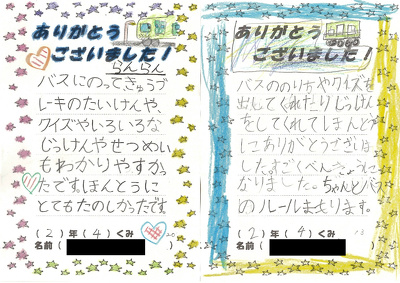 ありがとう
ございました！
らんらん
バスにのってきゅうブ
レーキのたいけんや、
クイズやいろいろな
じっけんやせつめい
もわかりやすかっ
たですほんとうに
とてもたのしかったです
(2)年(4)くみ
名前(
ありがとう
ございました！
バスののり方やクイズを
出してくれたりじっけん
をしてくれてほんとう
にありがとうございま
した。すごくべんきょうに
なりました。ちゃんとバス
のルールまもります。
(2)年(4)くみ
名前(